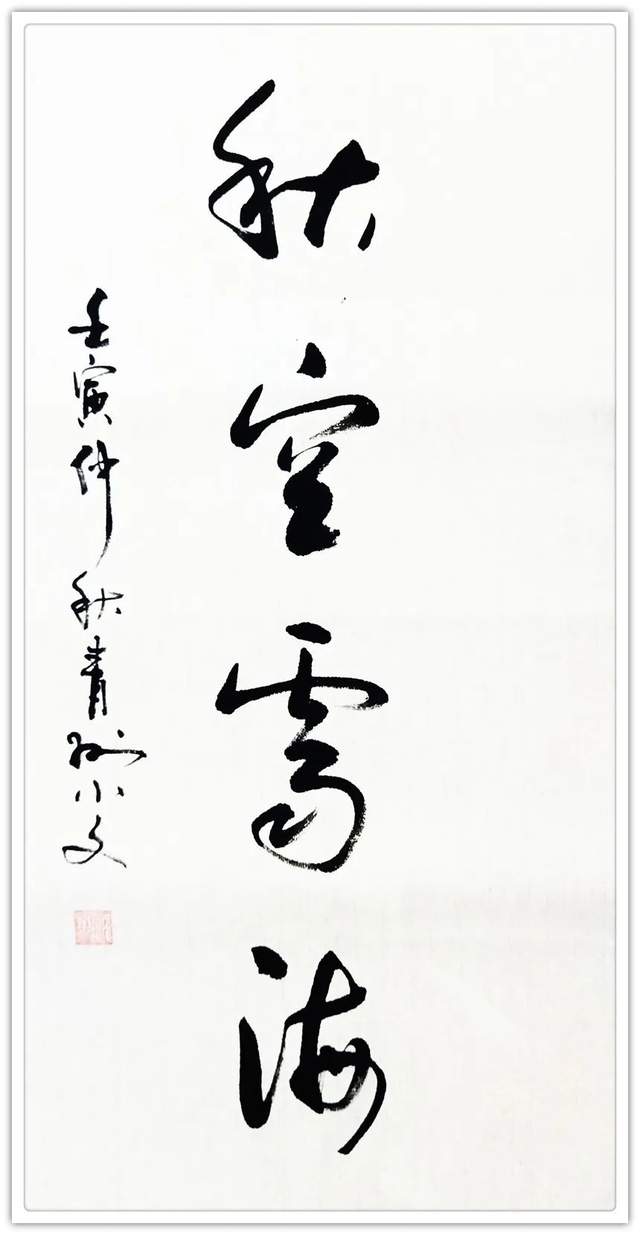 秋空霽海
壬寅仲秋青小文